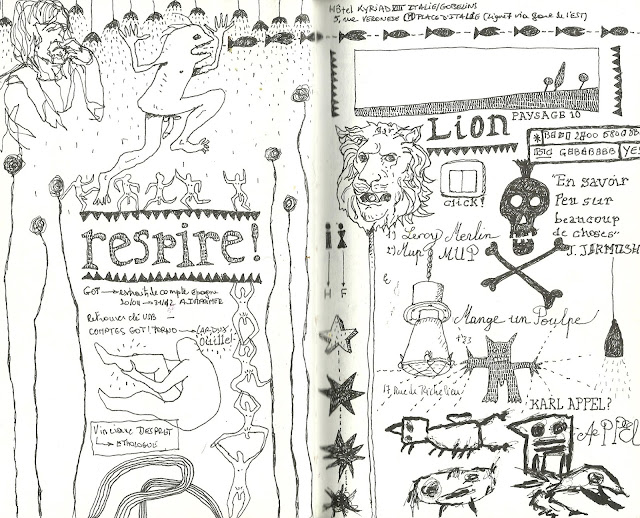 respire!
GOT
A. IMPRIMER
Retrouver clé USB
COMPTES GOT! PORNO
ouille!
Vinciane DESPRET
ETHOLOGUE
Hôtel KYRIAD XIII ITALIE/GOBELINS
5, rue VERONESE (M) PLACE D'ITALIE (ligne 7 via gare de l'EST)
PAYSAGE 10
Lion
YES
click!
"En savoir
Peu sur
beaucoup
de choses"
J. JARMUSH
1) Leroy Merlin
2) Mup MUP
H F
Mange un Poulpe
17 Rue de Richelieu
KARL APPEL?
APPEL